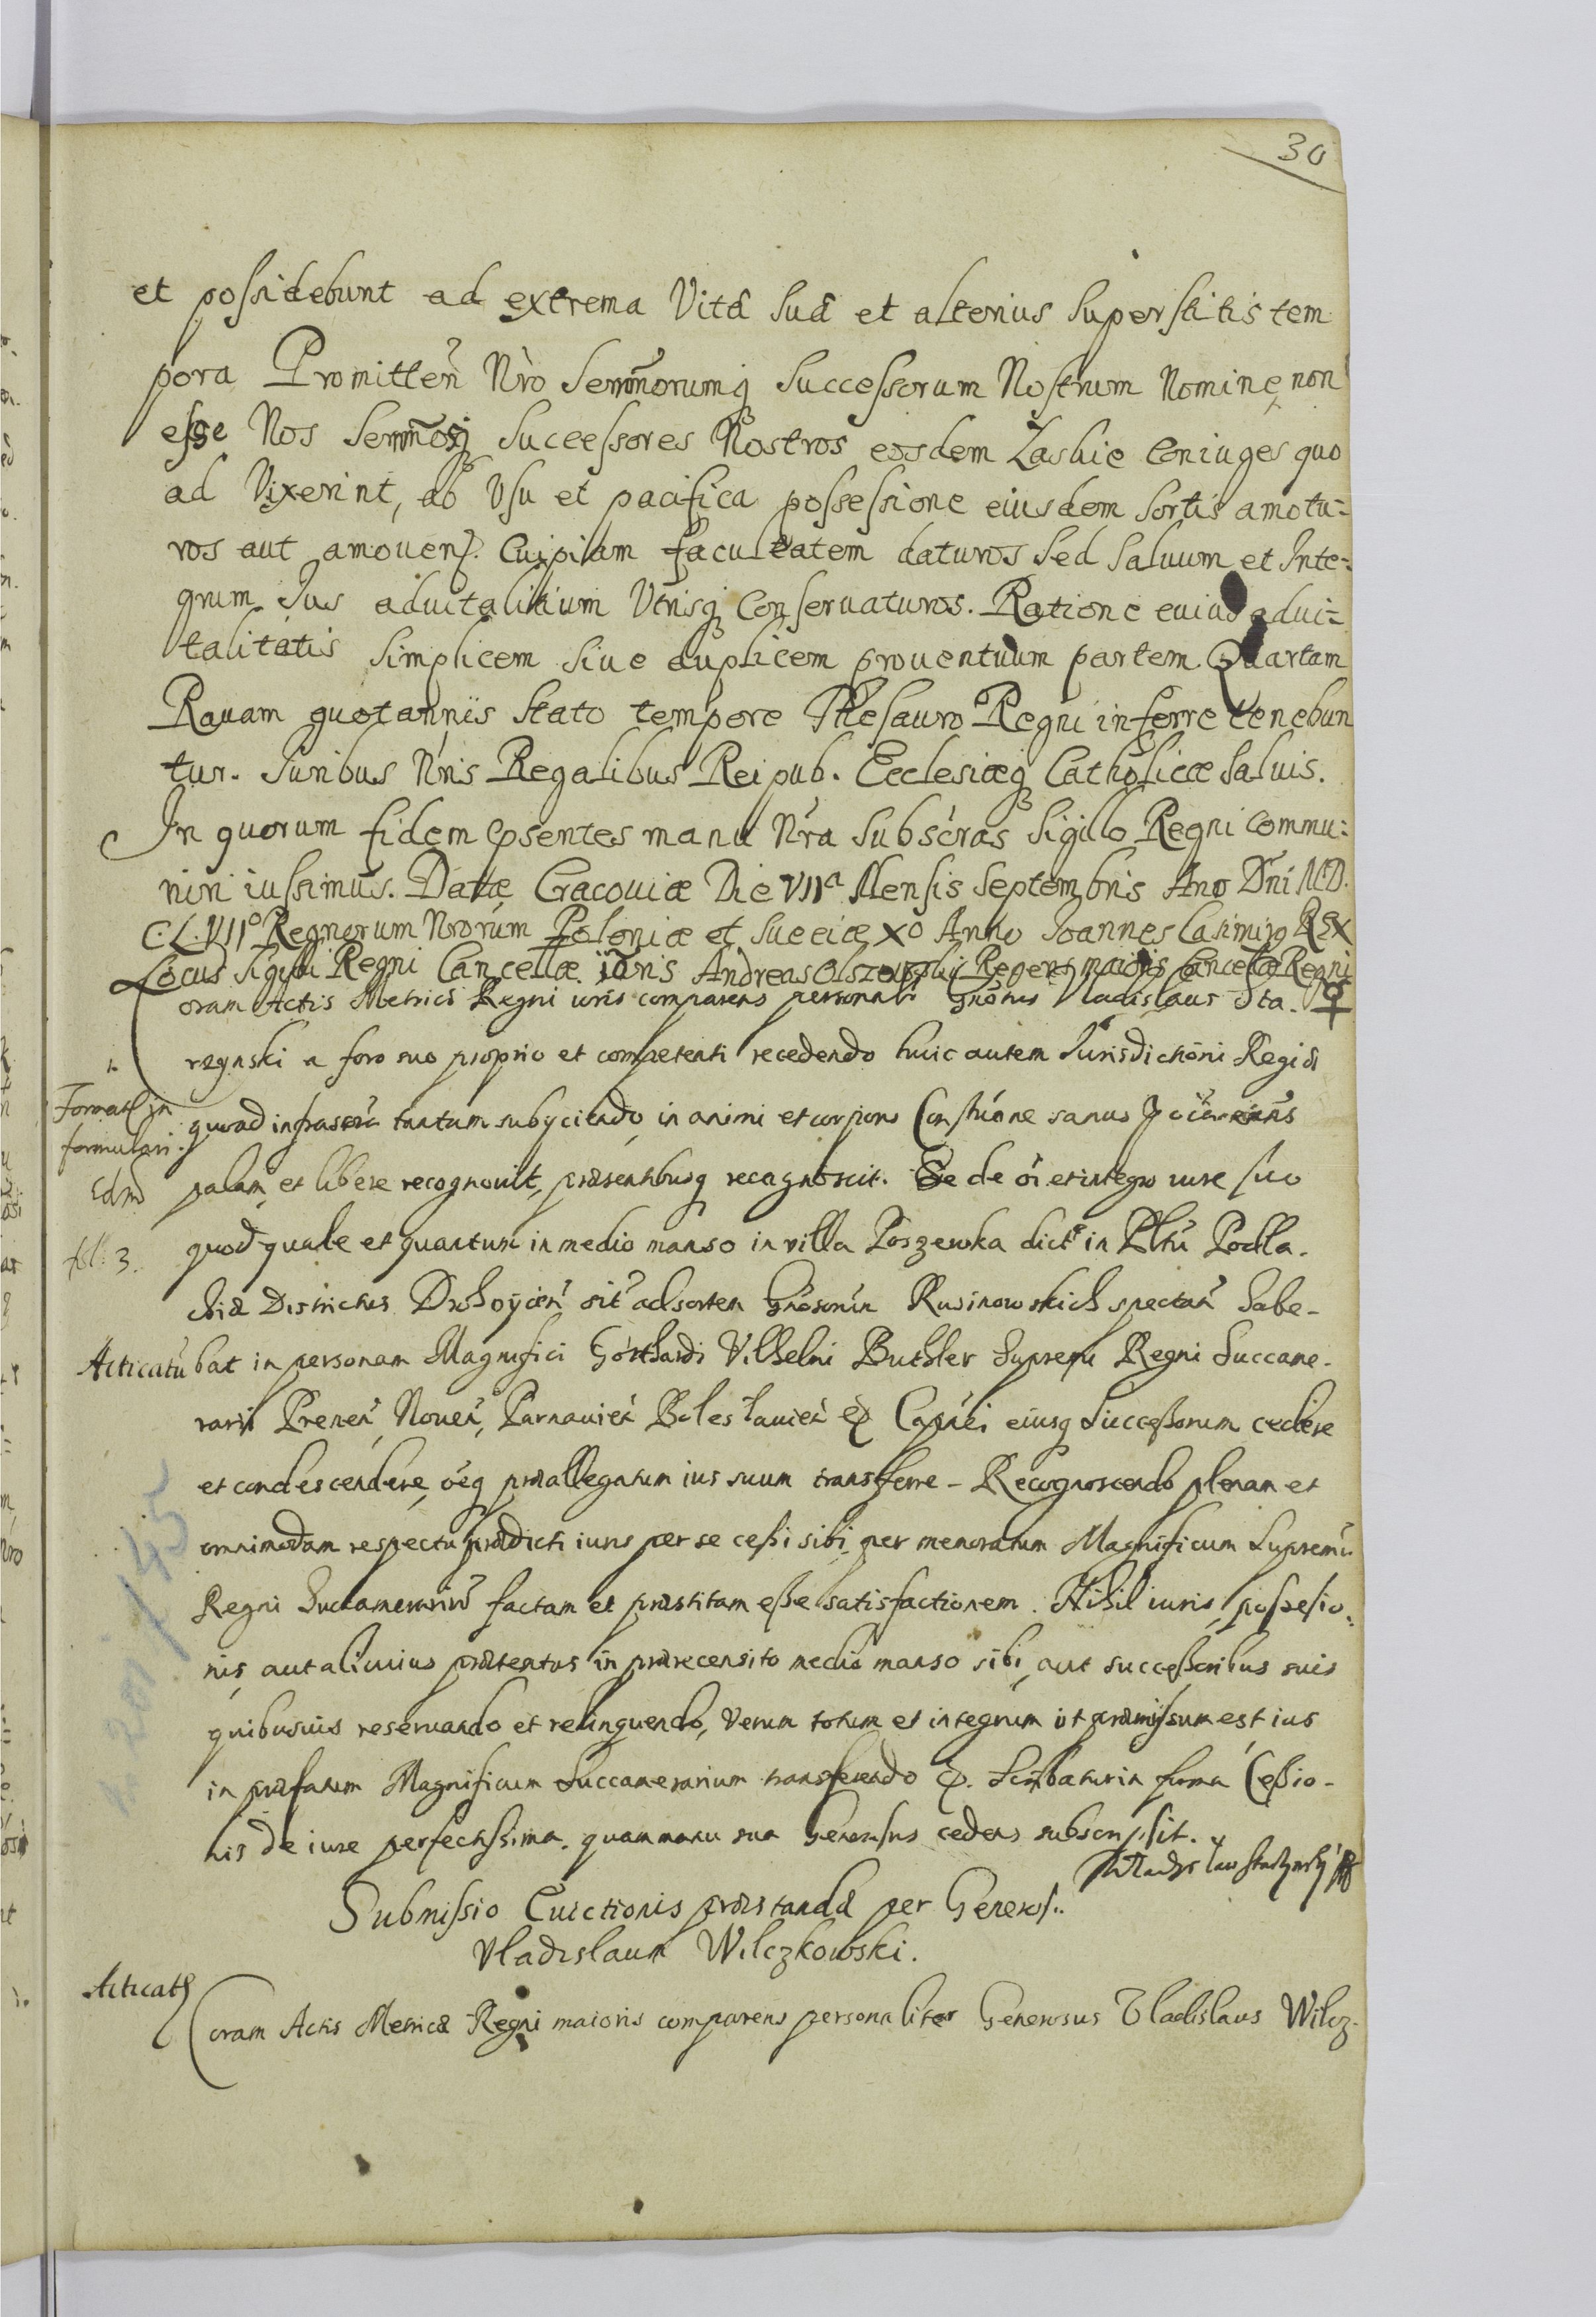 30
et possidebunt ad extrema Vitæ suæ et alterius superstitis tem
pora Promitten̄ Nro Sermorumq̨ Successorum Nostrum Nomine, non
esse Nos Sermosq̨ Successores Nostros eosdem Laskie Coniuges quo
ad Vixerint, ab Usu et pacifica possessione eiusdem Sortis amotu=
ros aut amouen̄. Cuipiam facultatem daturos Sed Saluum et Inte=
grum Ius aduitalitium Utrisq̨ Conseruaturos. Ratione cuius adui=
talitatis Simplicem Siue duplicem prouentuum partem. Quartam
Rauam quotannis Stato tempore Thesauro Regni inferre tenebun
tur. Iuribus Nris Regalibus Reipub. Ecclesiæq̨ Catholicæ Saluis.
In quorum fidem psentes manu Nra Subscras Sigillo Regni commu=
niri iussimus. Datæ Cracouiæ Die VIIa Mensis Septembris Ano Dni MD.
C.L.VIIo Regnorum Nrorum Poloniæ et Sueciæ Xo Anno Joannes Casimirg REX
Locus Sigilli Regni Cancellæ Andreas Olszouskij Regens maioris Cancellæ Regni
Coram Actis Metricæ Regni comparens personalr Gnosus Vladislaus Sta.
rzynski a foro suo proprio et competenti recedendo huic autem Iurisdictioni Regiæ
Format in
formulari:
fol: 3.
quoad infrascr tantum subyciendo, in animi et corporis Constitutione sanus
palam et libere recognouit, præsentibusq̨ recognoscit. Se de oi et integro iure suo
quod quale et quantum in medio manso in villa Poszewka dict in Pltu Podla.
chiæ Districtus Drohoycien̄ sit ad sortem Gnosorum Rusinowskich spectan̄ habe-
Acticatu
bat in personam Magnifici Gotthardi Vilhelmi Buthler Supremi Regni Succame-
rarij Prenen̄, Nouen̄, Parnauien̄ Boleslauien̄ & Capnei eiusq̨ Successorum cedere
et condescendere, oeq̨ præallegatum ius suum transferre - Recognoscendo plenam et
omnimodam respectu prædicti iuris per se cessi sibi per memoratum Magnificum Supremu
Regni Succamerariu factam et præstitam esse satisfactionem. Nihil iuris, possessio.
nis, aut alicuius prætextus in prærecensito medio manso sibi, aut successoribus suis
quibusuis reseruando et relinquendo, Verum totum et integrum ut præmissum est ius
in præfatum Magnificum Succamerarium transferendo &. Scribatur in forma Cessio-
nis de iure perfectissima. quam manu sua Generosus cedens subscripsit.
Submissio Euictionis præstandæ per Generos..
Vladislaum Wilczkowski.
Acticat
Coram Actis Metricæ Regni maioris comparens personaliter Generosus Vladislaus Wilcz-